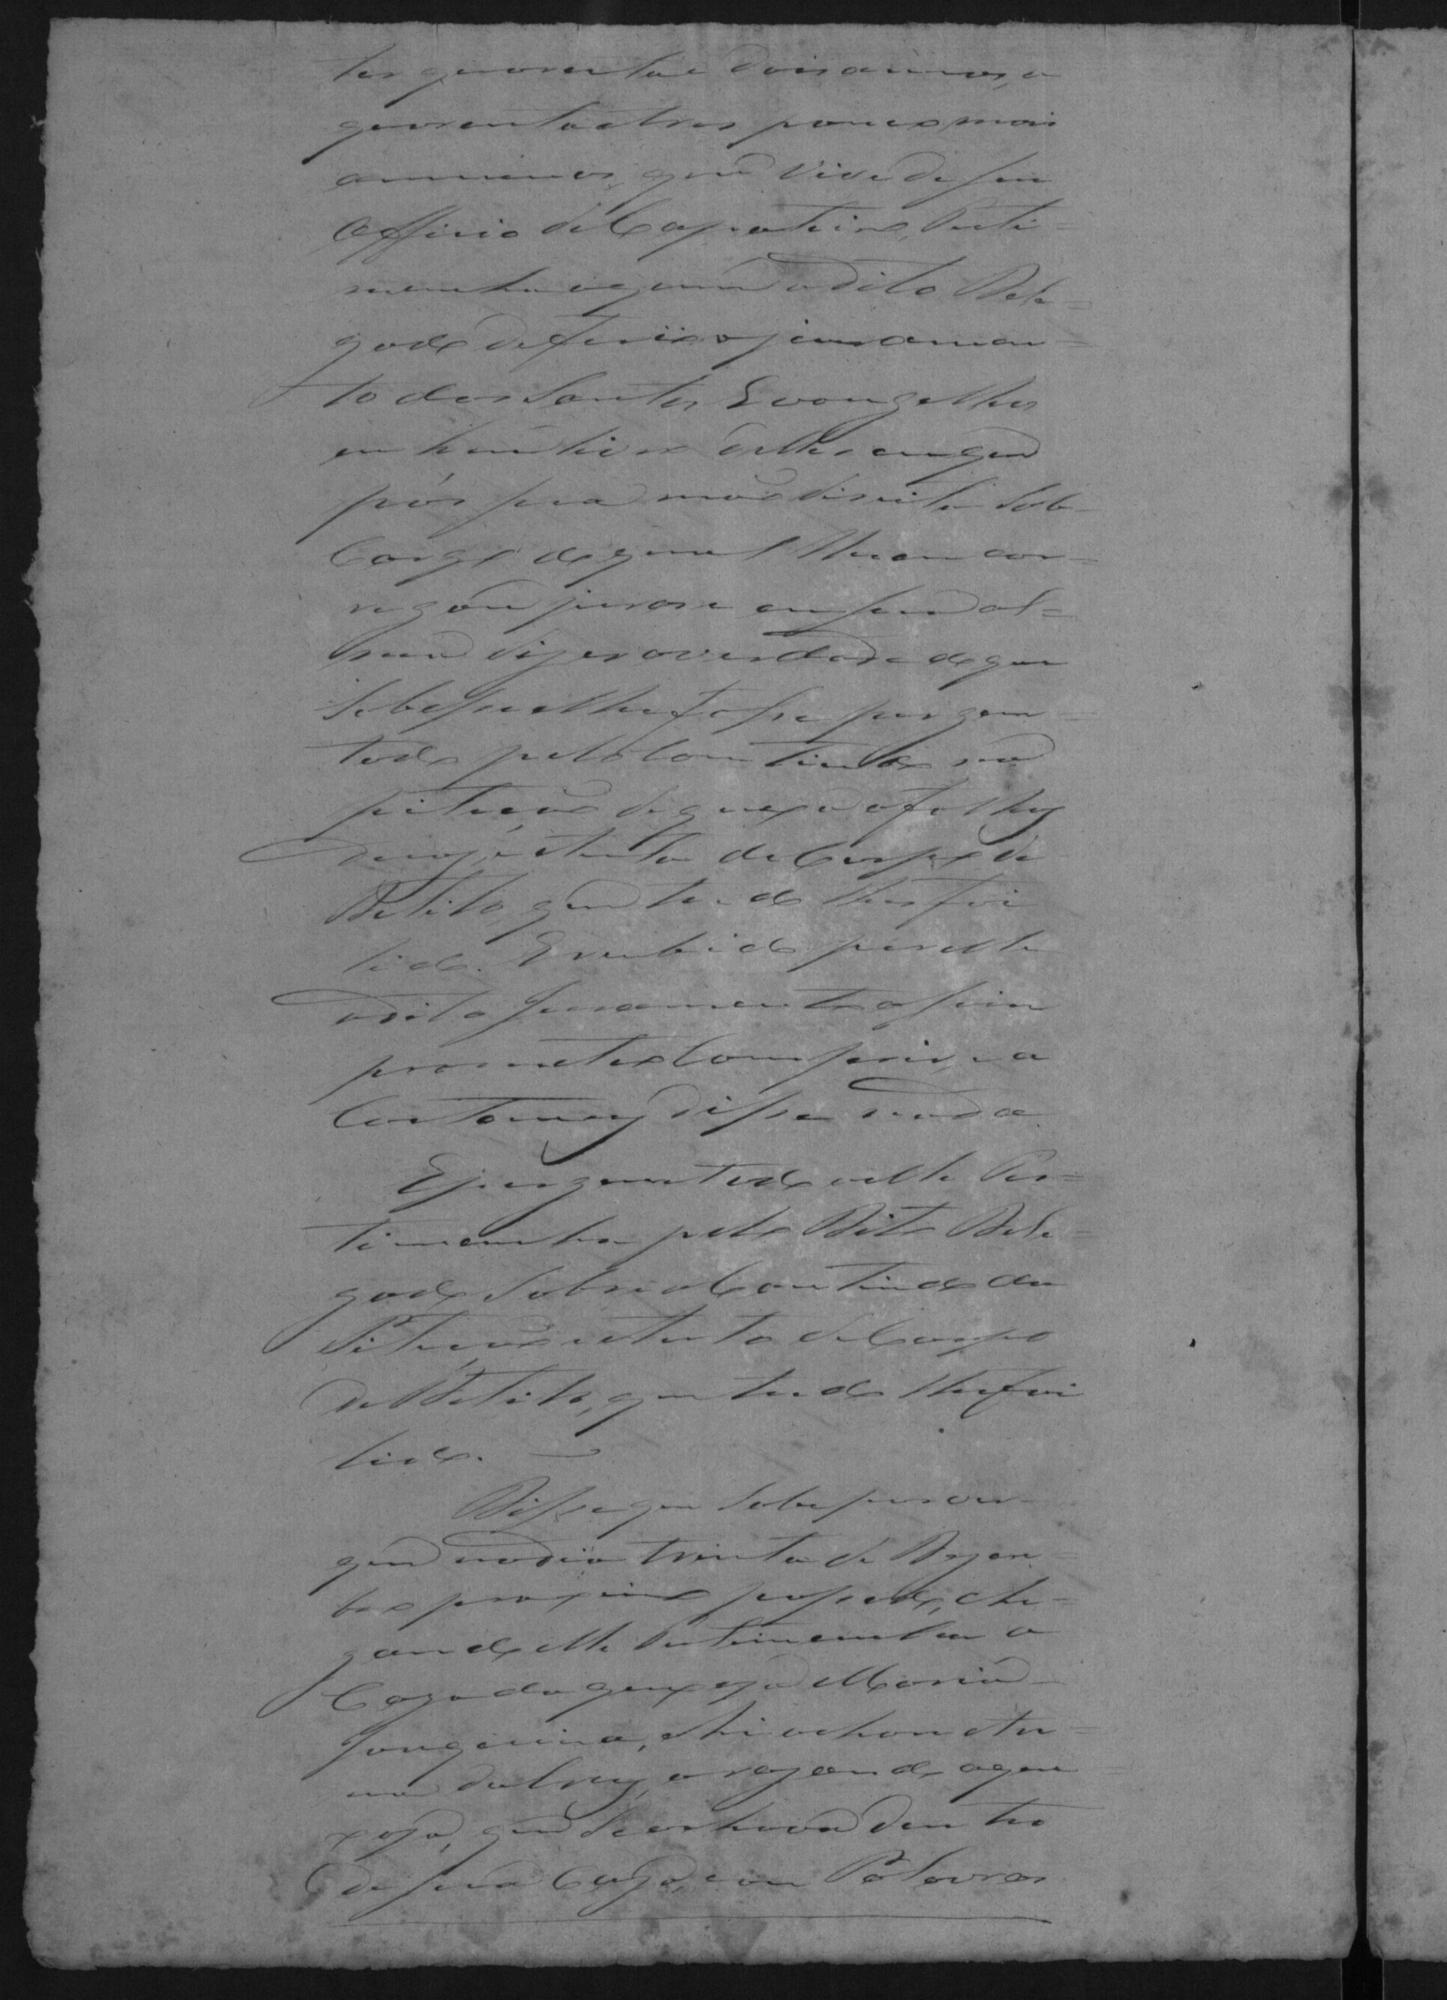 tes quarenta e dois annos, a
quarenta e tres pouco mais
ou menos, que vive de seu
Officio de Capateiro, Testi=
munha aquem o dito Dele=
gado deferio o juramen=
to dos Santos Evangelhos
em hum livro delles em que
pôs sua mão direita Sob
Cargo do qual lhe encar=
regou jurasse em sua al=
ma dizer a verdade do que
Soubesse e lhe fosse pergun=
tado pelo Contiudo na
petição de queixa a folhas
duas, e Auto de Corpo de
Delito que tudo lhe foi
lido. E recebido por elle
o dito Juramento assim
prometeo Comprir, e a
Costumes disse nada.
E perguntado a elle Tes=
timunha pelo Dito Dele=
gado Sobre o Contiudo da
Petição e Auto de Corpo
de Delito, que tudo lhe foi
lido.
Disse que Sabe por ver
que no dia trinta de Dezem=
bro proximo passado, che=
gando elle Testimunha a
Caza da queixoza Maria
Jouquina, ahi achou
a quei=
xoza, que Se achava dentro
de sua Caza, com Palavras